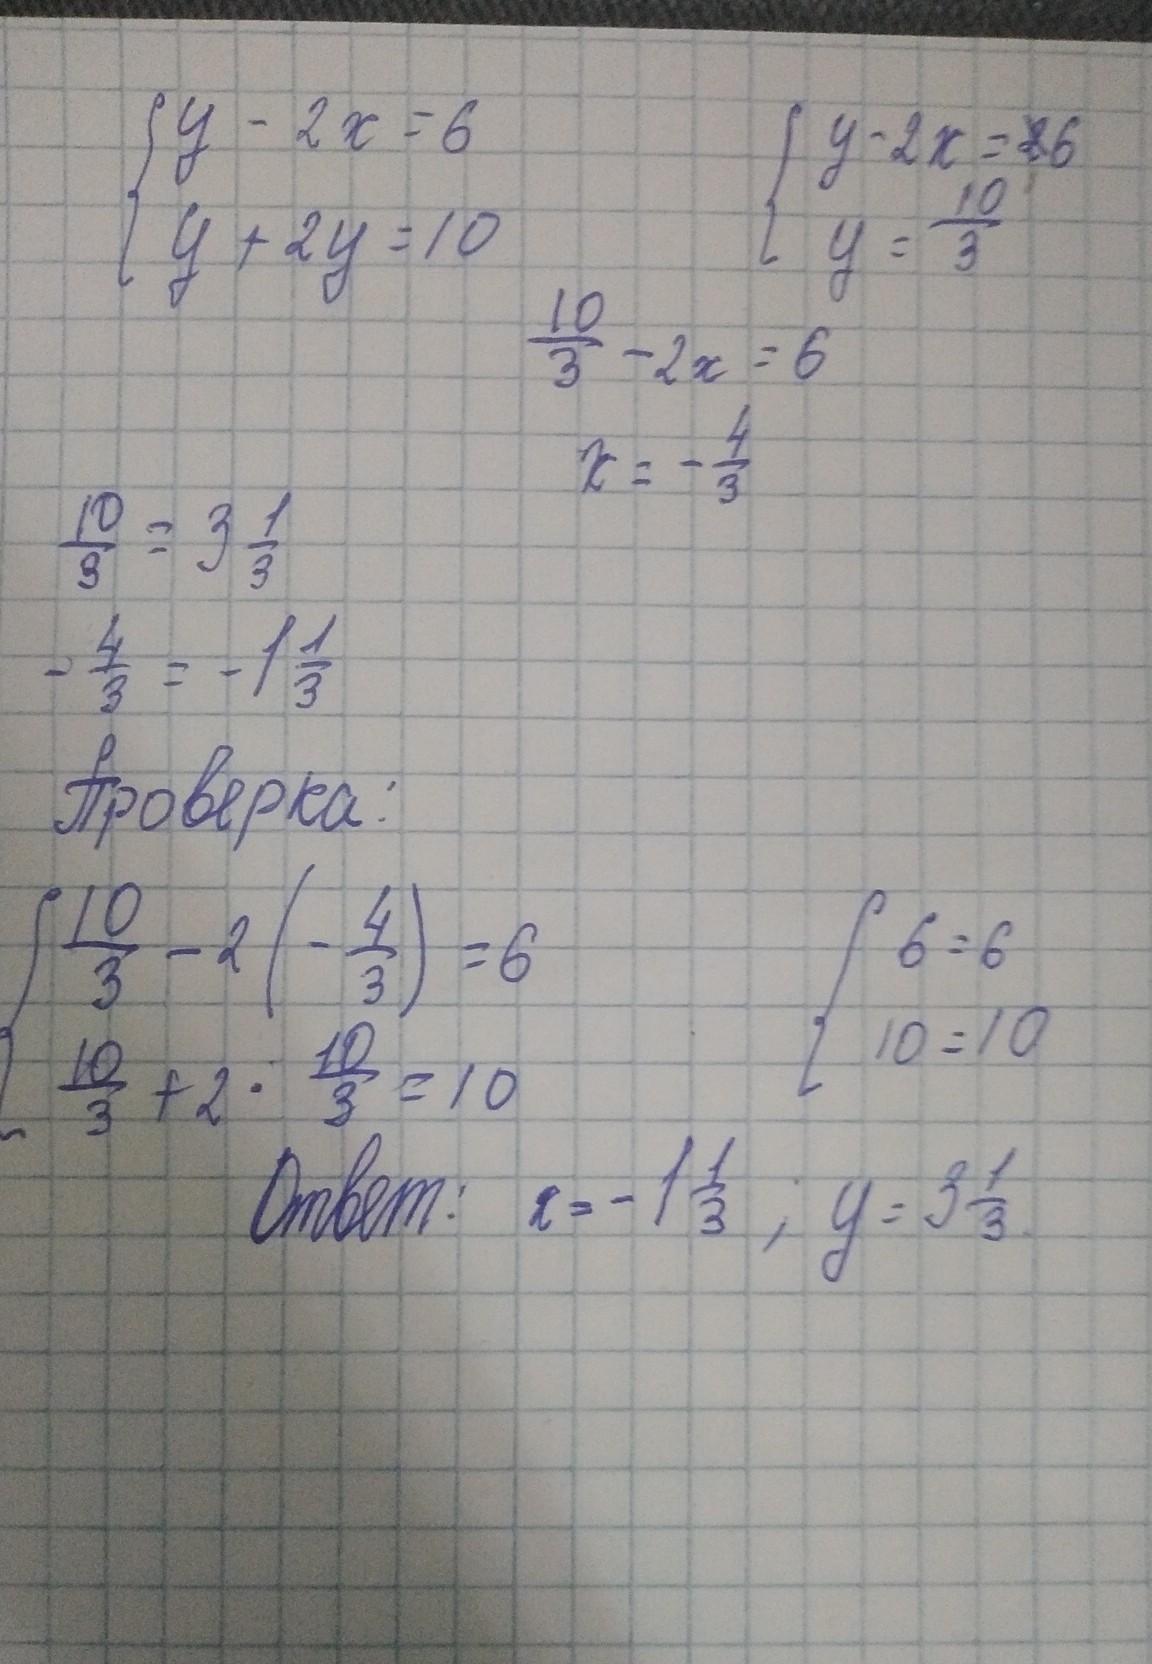 { y - 2x = 6
y + 2y = 10
{ y - 2x = 6
y = 10/3
10/3 - 2x = 6
x = - 4/3
10/3 = 3 1/3
- 4/3 = -1 1/3
Проверка:
{ 10/3 - 2 (- 4/3) = 6
10/3 + 2 · 10/3 = 10
{ 6 = 6
10 = 10
Ответ: x = -1 1/3 ; y = 3 1/3